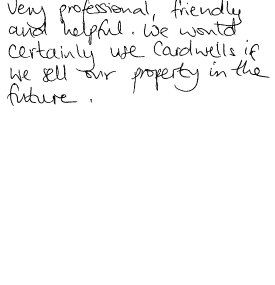 Very professional, friendly
and helpful. We would
certainly use Cardwells if
we sell our property in the
future.